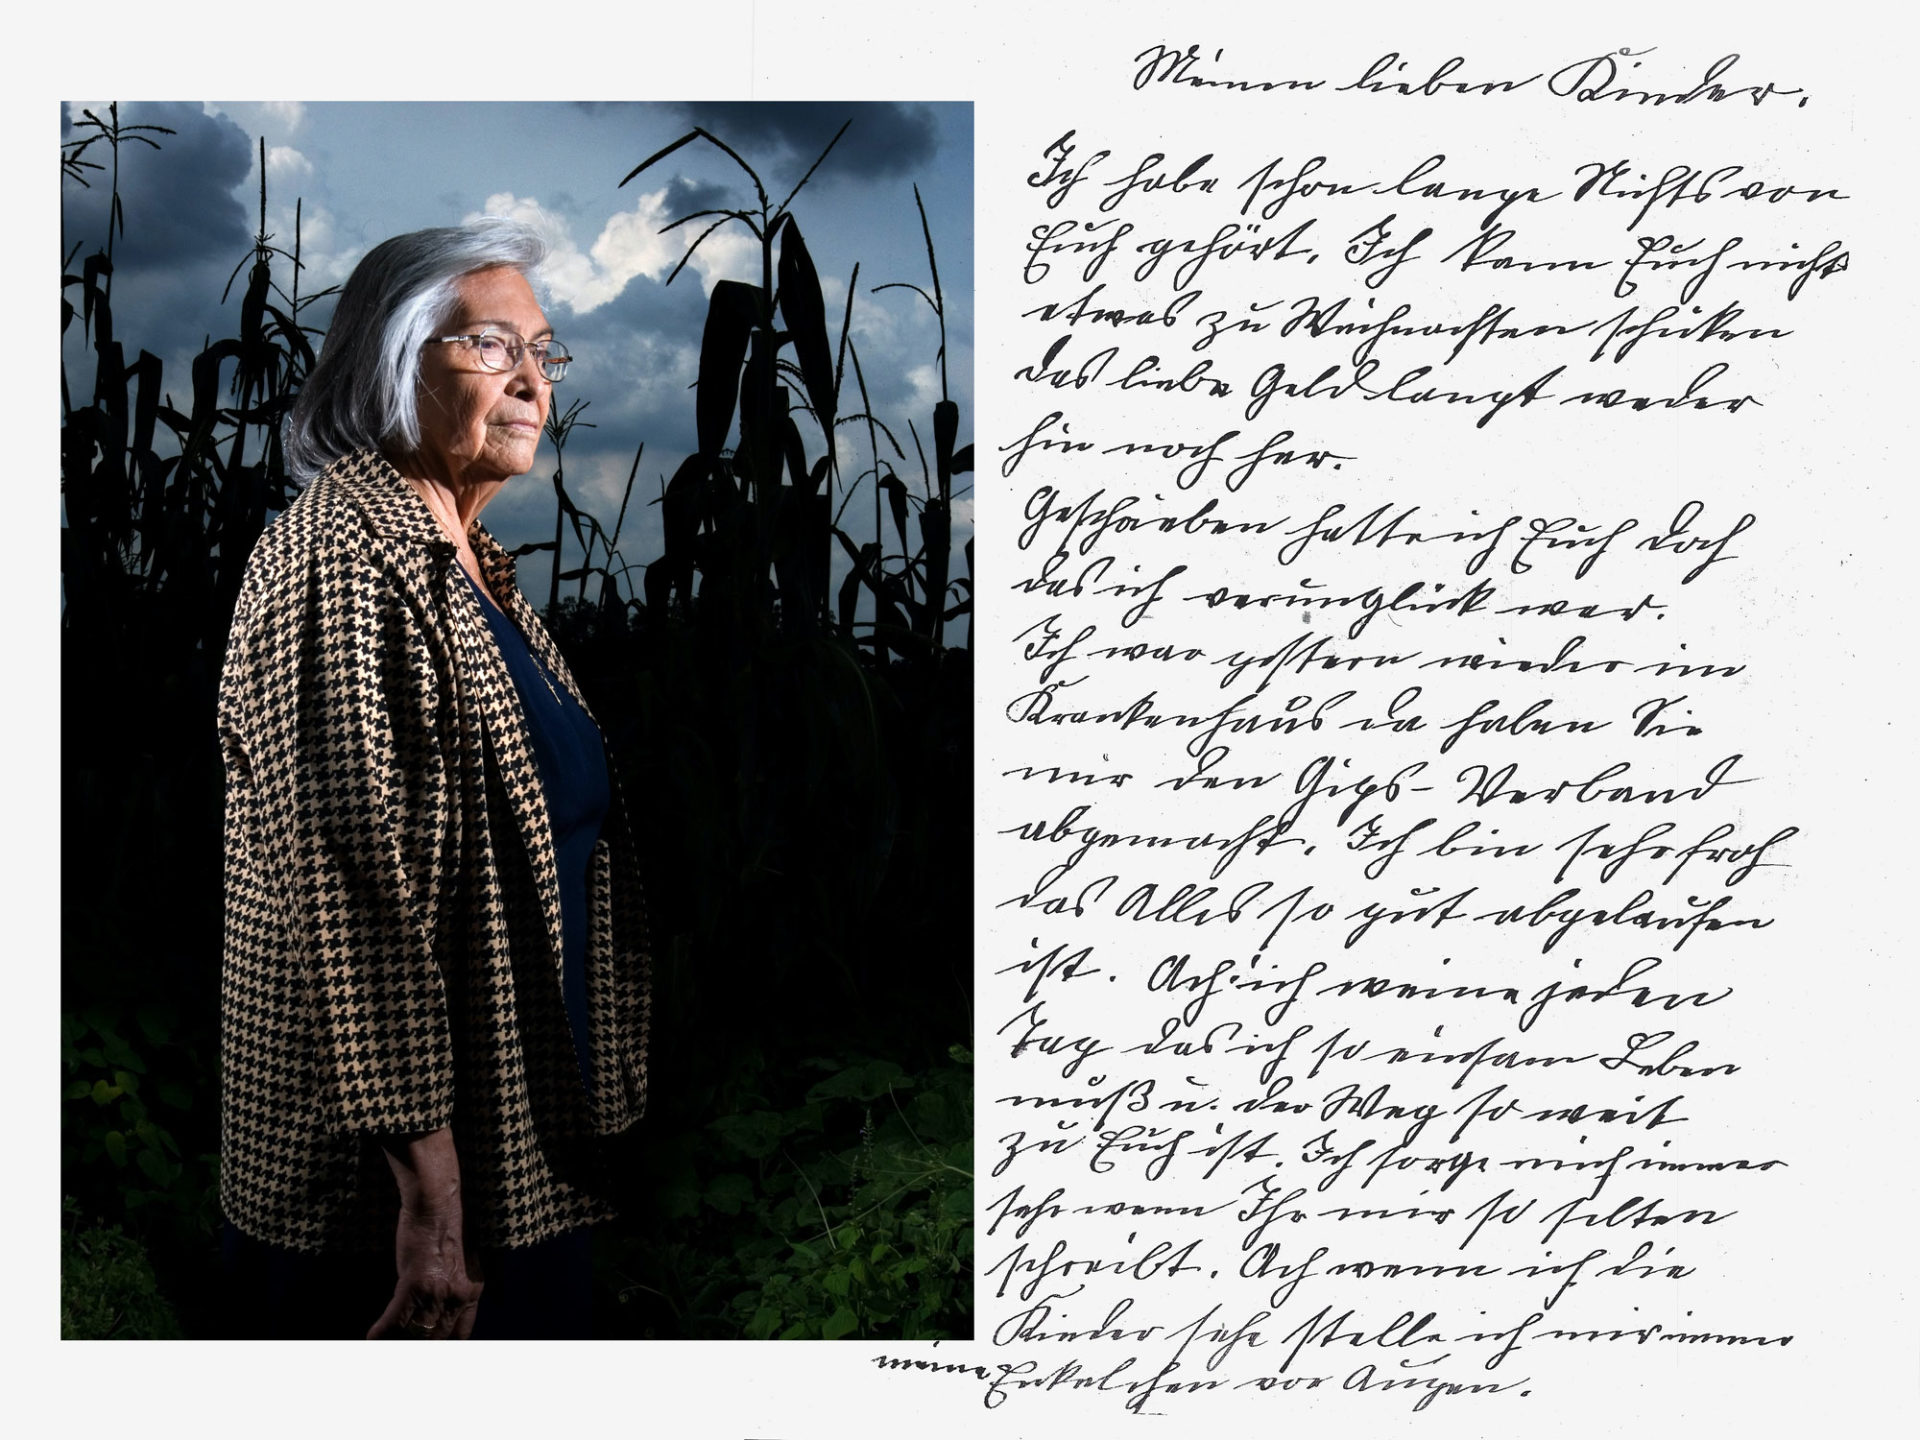 Meinen lieben Kinder.
Ich habe schon lange Nichts von
Euch gehört. Ich kann Euch nicht
etwas zu Weihnachten schicken
das liebe Geld langt weder
hin noch her.
Geschrieben hatte ich Euch doch
das ich verunglück war.
Ich war gestern wieder im
Krankenhaus da haben Sie
mir den Gips-Verband
abgemacht. Ich bin sehr froh
das Alles so gut abgelaufen
ist. Ach ich weine jeden
Tag das ich so einsam Leben
muß u. der Weg so weit
zu Euch ist. Ich sorge mich immer
sehr wenn Ihr mir so selten
schreibt. Ach wenn ich die
Kinder sehe stelle ich mir immer
meine Enkelchen vor Augen.